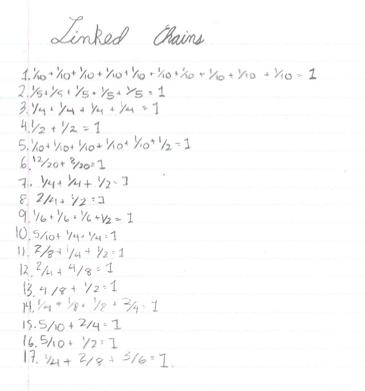 Linked Chains
1. 1/10 + 1/10 + 1/10 + 1/10 + 1/10 + 1/10 + 1/10 + 1/10 + 1/10 + 1/10 = 1
2. 1/5 + 1/5 + 1/5 + 1/5 + 1/5 = 1
3. 1/4 + 1/4 + 1/4 + 1/4 = 1
4. 1/2 + 1/2 = 1
5. 1/10 + 1/10 + 1/10 + 1/10 + 1/10 + 1/2 = 1
6. 12/20 + 8/20 = 1
7. 1/4 + 1/4 + 1/2 = 1
8. 2/4 + 1/2 = 1
9. 1/6 + 1/6 + 1/6 + 1/2 = 1
10. 5/10 + 1/4 + 1/4 = 1
11. 2/8 + 1/4 + 1/2 = 1
12. 2/4 + 4/8 = 1
13. 4/8 + 1/2 = 1
14. 1/4 + 1/8 + 1/8 + 2/4 = 1
15. 5/10 + 2/4 = 1
16. 5/10 + 1/2 = 1
17. 1/4 + 2/8 + 3/6 = 1